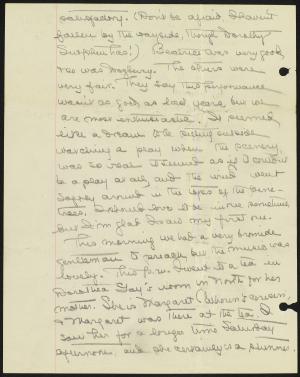 satisfactory. (Don't be afraid I haven't
fallen by the wayside, though Dorothy
Sutphen has!) Beatrice was very good,
so was Dogberry. The others were
very fair. They say this performance
wasn't as good as last years, but we
are most enthusiastic. It seemed
like a dream to be sitting outside
watching a play when the scenery
was so real it seemed as if it couldn't
be a play at all, and the wind went
in the tops of the pine-
trees. I should love to be in one sometime,
but I'm glad I saw my first one.
This morning we had a very
gentleman to preach but the music was
lovely. This p.m. I went to a tea in
Dorothea Day's room in North for her
mother. She is Margaret cousin,
& Margaret was there at the tea. I
saw her for a longer time Saturday
afternoon, and she certainly is a